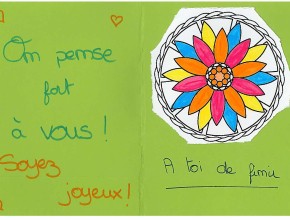 On pense
fort
à vous !
Soyez
joyeux !
A toi de finir